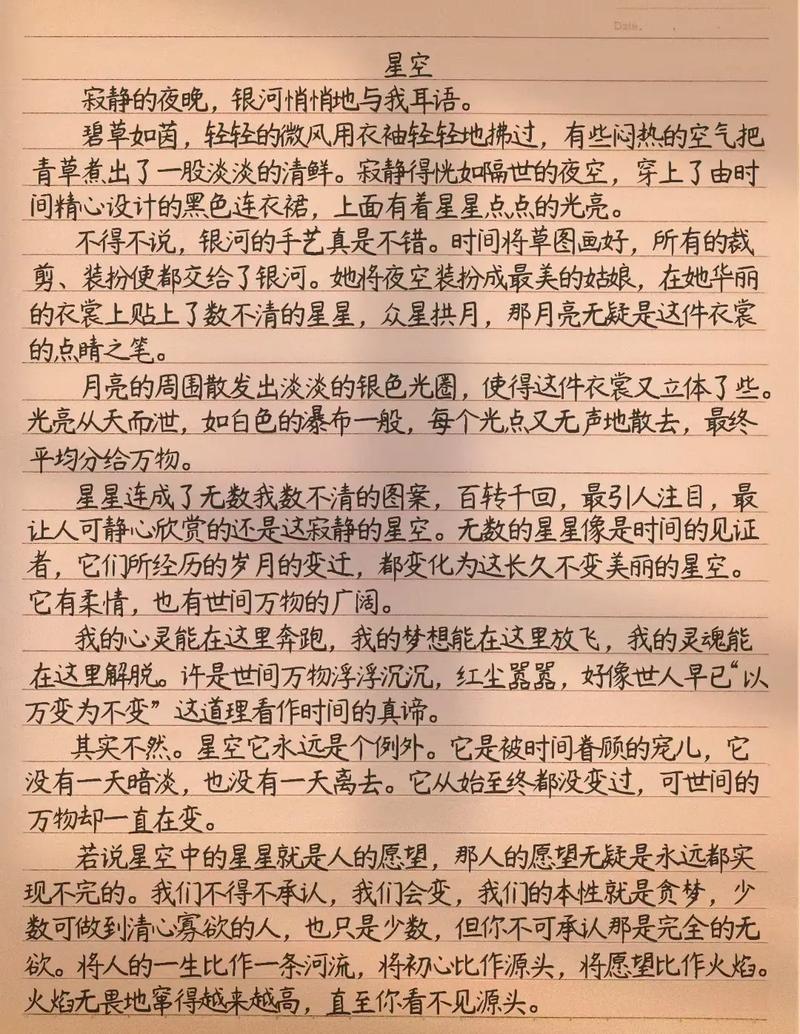 Date.
星空
寂静的夜晚，银河悄悄地与我耳语。
碧草如茵，轻轻的微风用衣袖轻轻地拂过，有些闷热的空气把
青草煮出了一股淡淡的清鲜。寂静得恍如隔世的夜空，穿上了由时
间精心设计的黑色连衣裙，上面有着星星点点的光亮。
不得不说，银河的手艺真是不错。时间将草图画好，所有的裁
剪、装扮便都交给了银河。她将夜空装扮成最美的姑娘，在她华丽
的衣裳上贴上了数不清的星星，众星拱月，那月亮无疑是这件衣裳
的点睛之笔。
月亮的周围散发出淡淡的银色光圈，使得这件衣裳又立体了些。
光亮从天而泄，如白色的瀑布一般，每个光点又无声地散去，最终
平均分给万物。
星星连成了无数我数不清的图案，百转千回，最引人注目，最
让人可静心欣赏的还是这寂静的星空。无数的星星像是时间的见证
者，它们所经历的岁月的变迁，都变化为这长久不变美丽的星空。
它有柔情，也有世间万物的广阔。
我的心灵能在这里奔跑，我的梦想能在这里放飞，我的灵魂能
在这里解脱。许是世间万物浮浮沉沉，红尘嚣嚣，好像世人早已“以
万变为不变”这道理看作时间的真谛。
其实不然。星空它永远是个例外。它是被时间眷顾的宠儿，它
没有一天暗淡，也没有一天离去。它从始至终都没变过，可世间的
万物却一直在变。
若说星空中的星星就是人的愿望，那人的愿望无疑是永远都实
现不完的。我们不得不承认，我们会变，我们的本性就是贪梦，少
数可做到清心寡欲的人，也只是少数，但你不可承认那是完全的无
欲。将人的一生比作一条河流，将初心比作源头，将愿望比作火焰。
火焰无畏地窜得越来越高，直至你看不见源头。